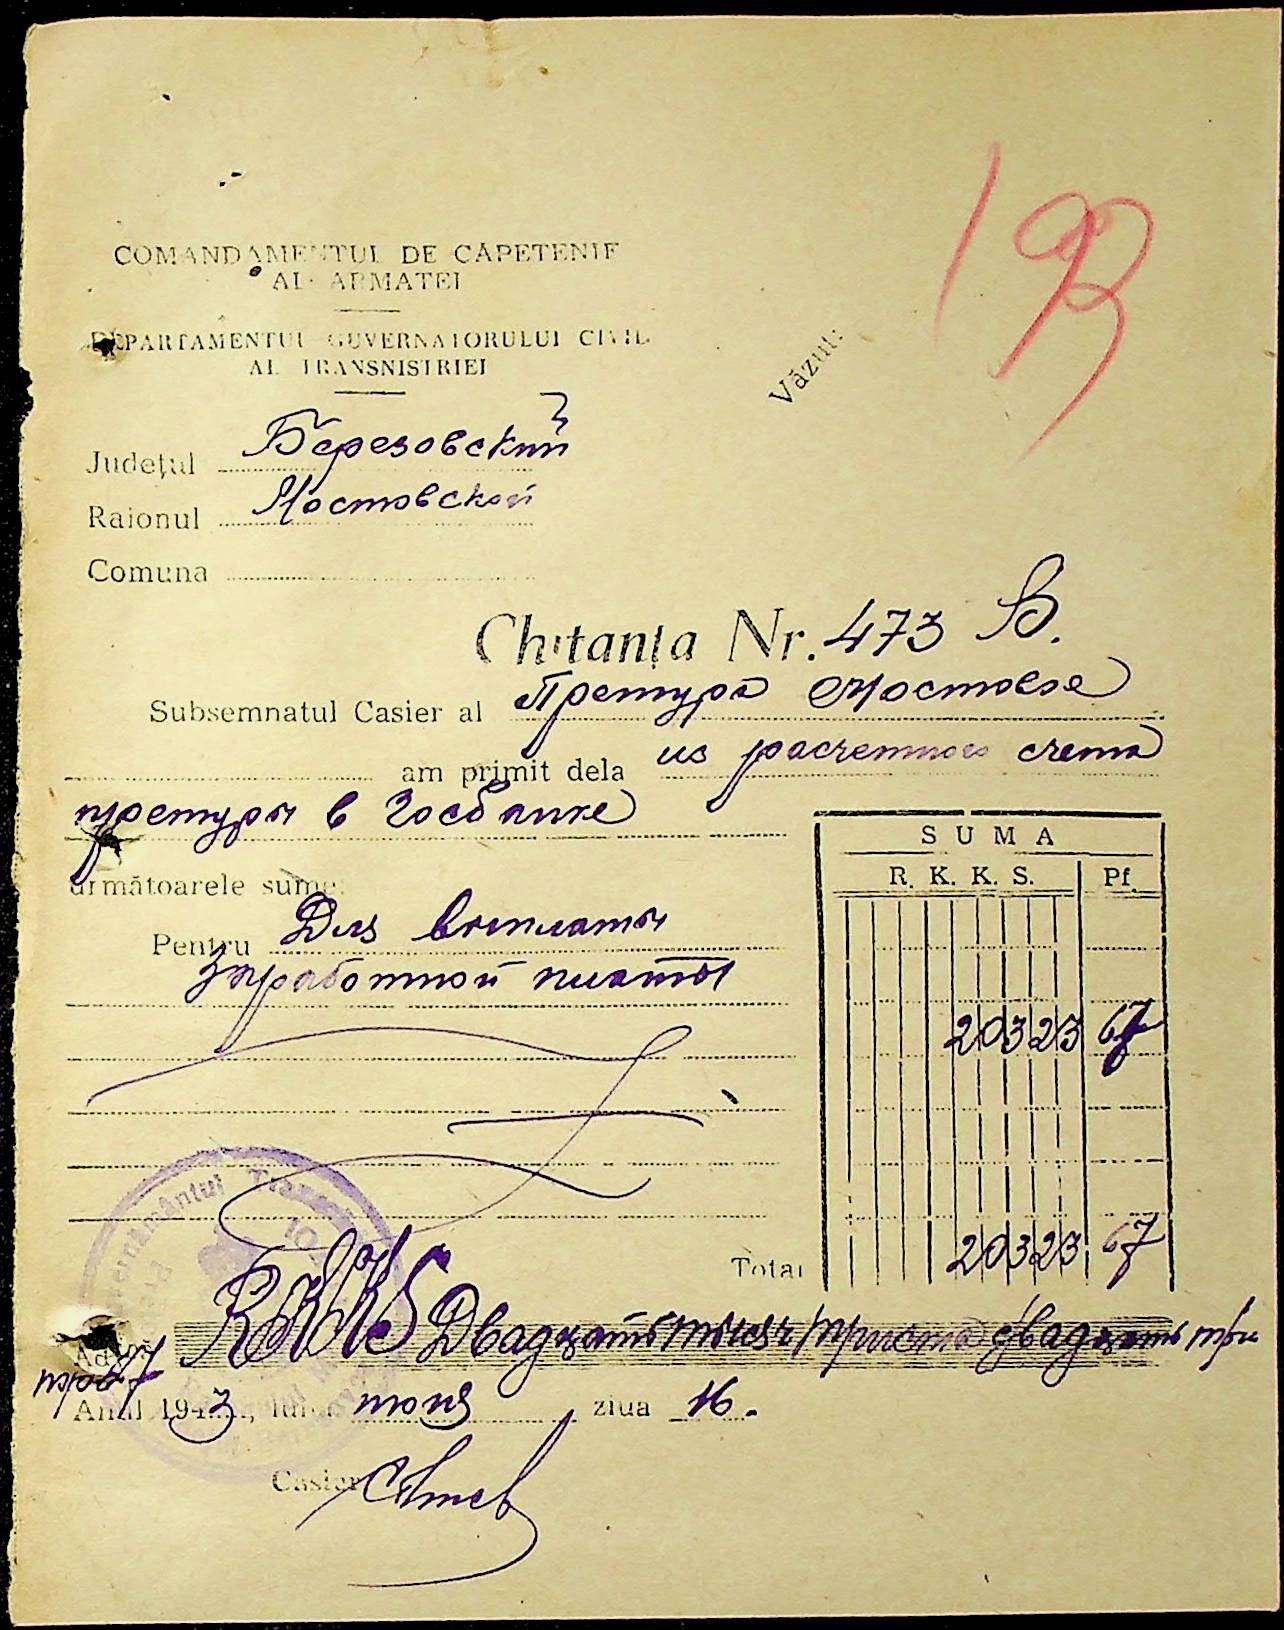 193
COMANDAMENTUL DE CAPETENIE
AL ARMATEI
DEPARTAMENTUL GUVERNATORULUI CIVIL
AL TRANSNISTRIEI
Văzut:
Județul Березовский
Raionul Мостовской
Comuna
Chitanța Nr. 473 B.
Subsemnatul Casier al Претура Мостовое
am primit dela из расчетного счета
претуры в Госбанке
SUMA
R. K. K. S. Pf.
următoarele sume:
Pentru Для выплаты
Заработной платы
20323 67
Total 20323 67
RKKS Двадцать тысяч триста двадцать три
67
Anul 1943, luna июня ziua 16.
Casier